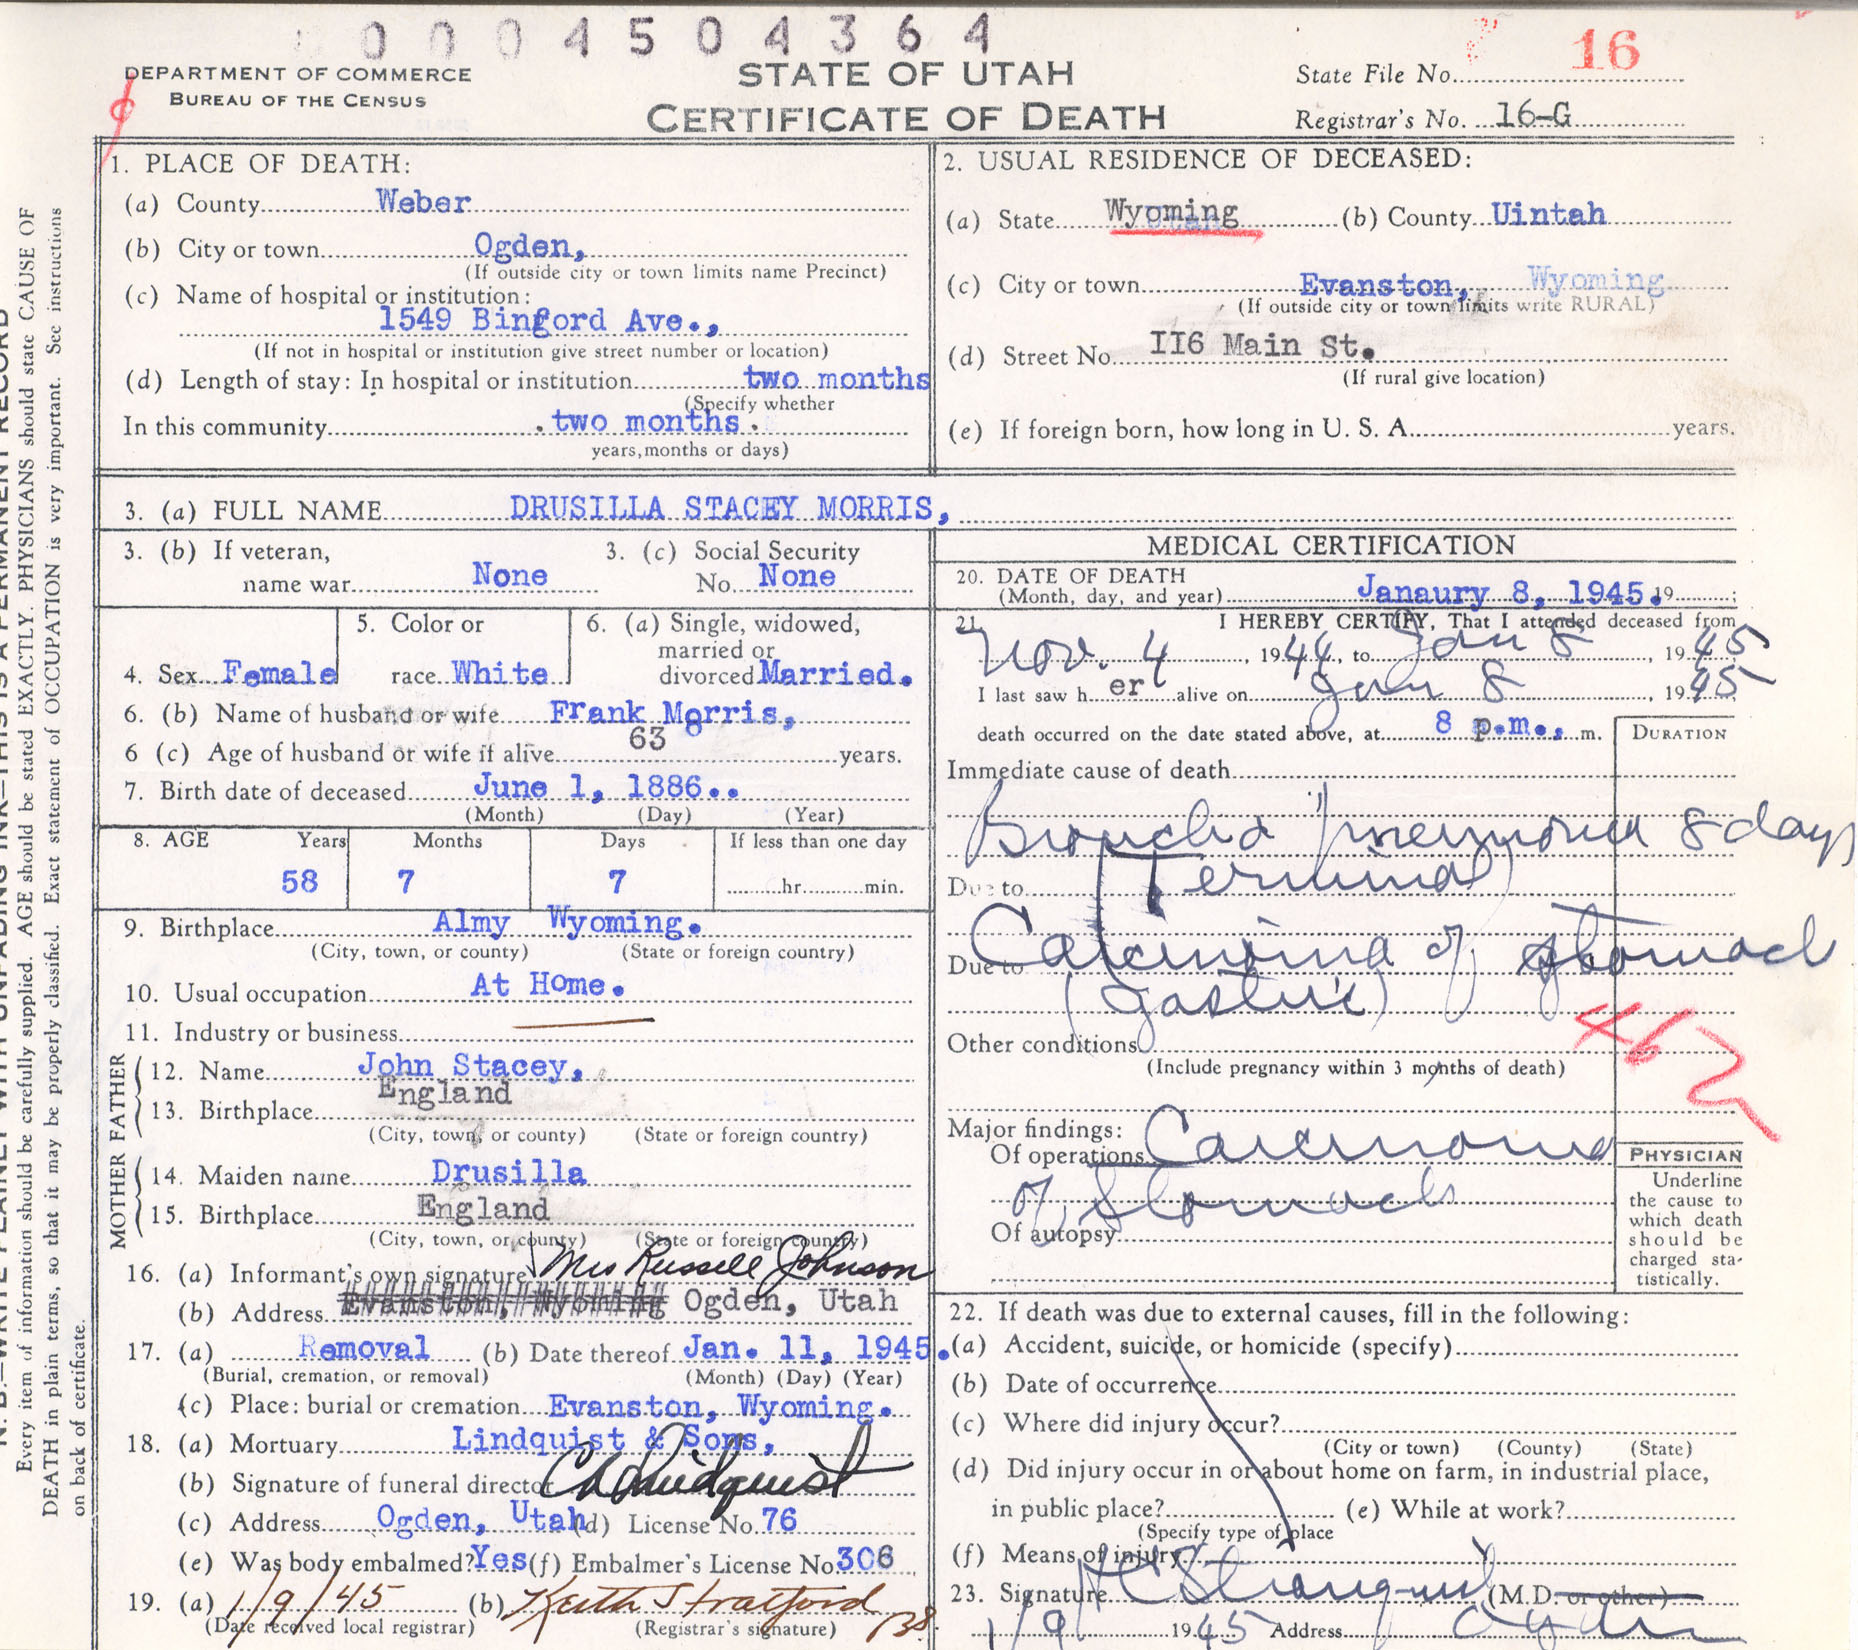 0004504364
DEPARTMENT OF COMMERCE
BUREAU OF THE CENSUS
STATE OF UTAH
CERTIFICATE OF DEATH
State File No. 16
Registrar's No. 16-G
N. B.—WRITE PLAINLY WITH UNFADING INK—THIS IS A PERMANENT RECORD
Every item of information should be carefully supplied. AGE should be stated EXACTLY. PHYSICIANS should state CAUSE OF
DEATH in plain terms, so that it may be properly classified. Exact statement of OCCUPATION is very important. See instructions
on back of certificate.
1. PLACE OF DEATH:
(a) County Weber
(b) City or town Ogden,
(If outside city or town limits name Precinct)
(c) Name of hospital or institution:
1549 Binford Ave.,
(If not in hospital or institution give street number or location)
(d) Length of stay: In hospital or institution two months
(Specify whether
In this community two months.
years, months or days)
2. USUAL RESIDENCE OF DECEASED:
(a) State Wyoming (b) County Uintah
(c) City or town Evanston, Wyoming
(If outside city or town limits write RURAL)
(d) Street No. II6 Main St.
(If rural give location)
(e) If foreign born, how long in U. S. A. years.
3. (a) FULL NAME DRUSILLA STACEY MORRIS,
3. (b) If veteran,
name war None
3. (c) Social Security
No. None
4. Sex Female
5. Color or
race White
6. (a) Single, widowed,
married or
divorced Married.
6. (b) Name of husband or wife Frank Morris,
6 (c) Age of husband or wife if alive 63 years.
7. Birth date of deceased June 1, 1886..
(Month) (Day) (Year)
8. AGE Years Months Days If less than one day
58 7 7 hr. min.
9. Birthplace Almy Wyoming.
(City, town, or county) (State or foreign country)
10. Usual occupation At Home.
11. Industry or business
FATHER
12. Name John Stacey,
13. Birthplace England
(City, town, or county) (State or foreign country)
MOTHER
14. Maiden name Drusilla
15. Birthplace England
(City, town, or county) (State or foreign country)
16. (a) Informant's own signature Mrs Russell Johnson
(b) Address Evanston, Wyoming Ogden, Utah
17. (a) Removal (b) Date thereof Jan. 11, 1945.
(Burial, cremation, or removal) (Month) (Day) (Year)
(c) Place: burial or cremation Evanston, Wyoming.
18. (a) Mortuary Lindquist & Sons,
(b) Signature of funeral director Lindquist
(c) Address Ogden, Utah (d) License No. 76
(e) Was body embalmed? Yes (f) Embalmer's License No. 306
19. (a) 1/9/45 (b) Keith Stratford
(Date received local registrar) (Registrar's signature)
MEDICAL CERTIFICATION
20. DATE OF DEATH
(Month, day, and year) Janaury 8, 1945. 19 ;
21. I HEREBY CERTIFY, That I attended deceased from
Nov. 4, 1944, to Jan 8, 1945
I last saw her alive on Jan 8, 1945
death occurred on the date stated above, at 8 p.m., m.
DURATION
Immediate cause of death
Broncho pneumonia 8 days
Due to (Terminal)
Carcinoma of stomach
Due to
(Gastric)
462
Other conditions
(Include pregnancy within 3 months of death)
Major findings:
Of operations Carcinoma
of stomach
Of autopsy
PHYSICIAN
Underline
the cause to
which death
should be
charged sta-
tistically.
22. If death was due to external causes, fill in the following:
(a) Accident, suicide, or homicide (specify)
(b) Date of occurrence
(c) Where did injury occur?
(City or town) (County) (State)
(d) Did injury occur in or about home on farm, in industrial place,
in public place? (e) While at work?
(Specify type of place
(f) Means of injury
23. Signature (M.D. or other)
1/9 1945 Address Ogden